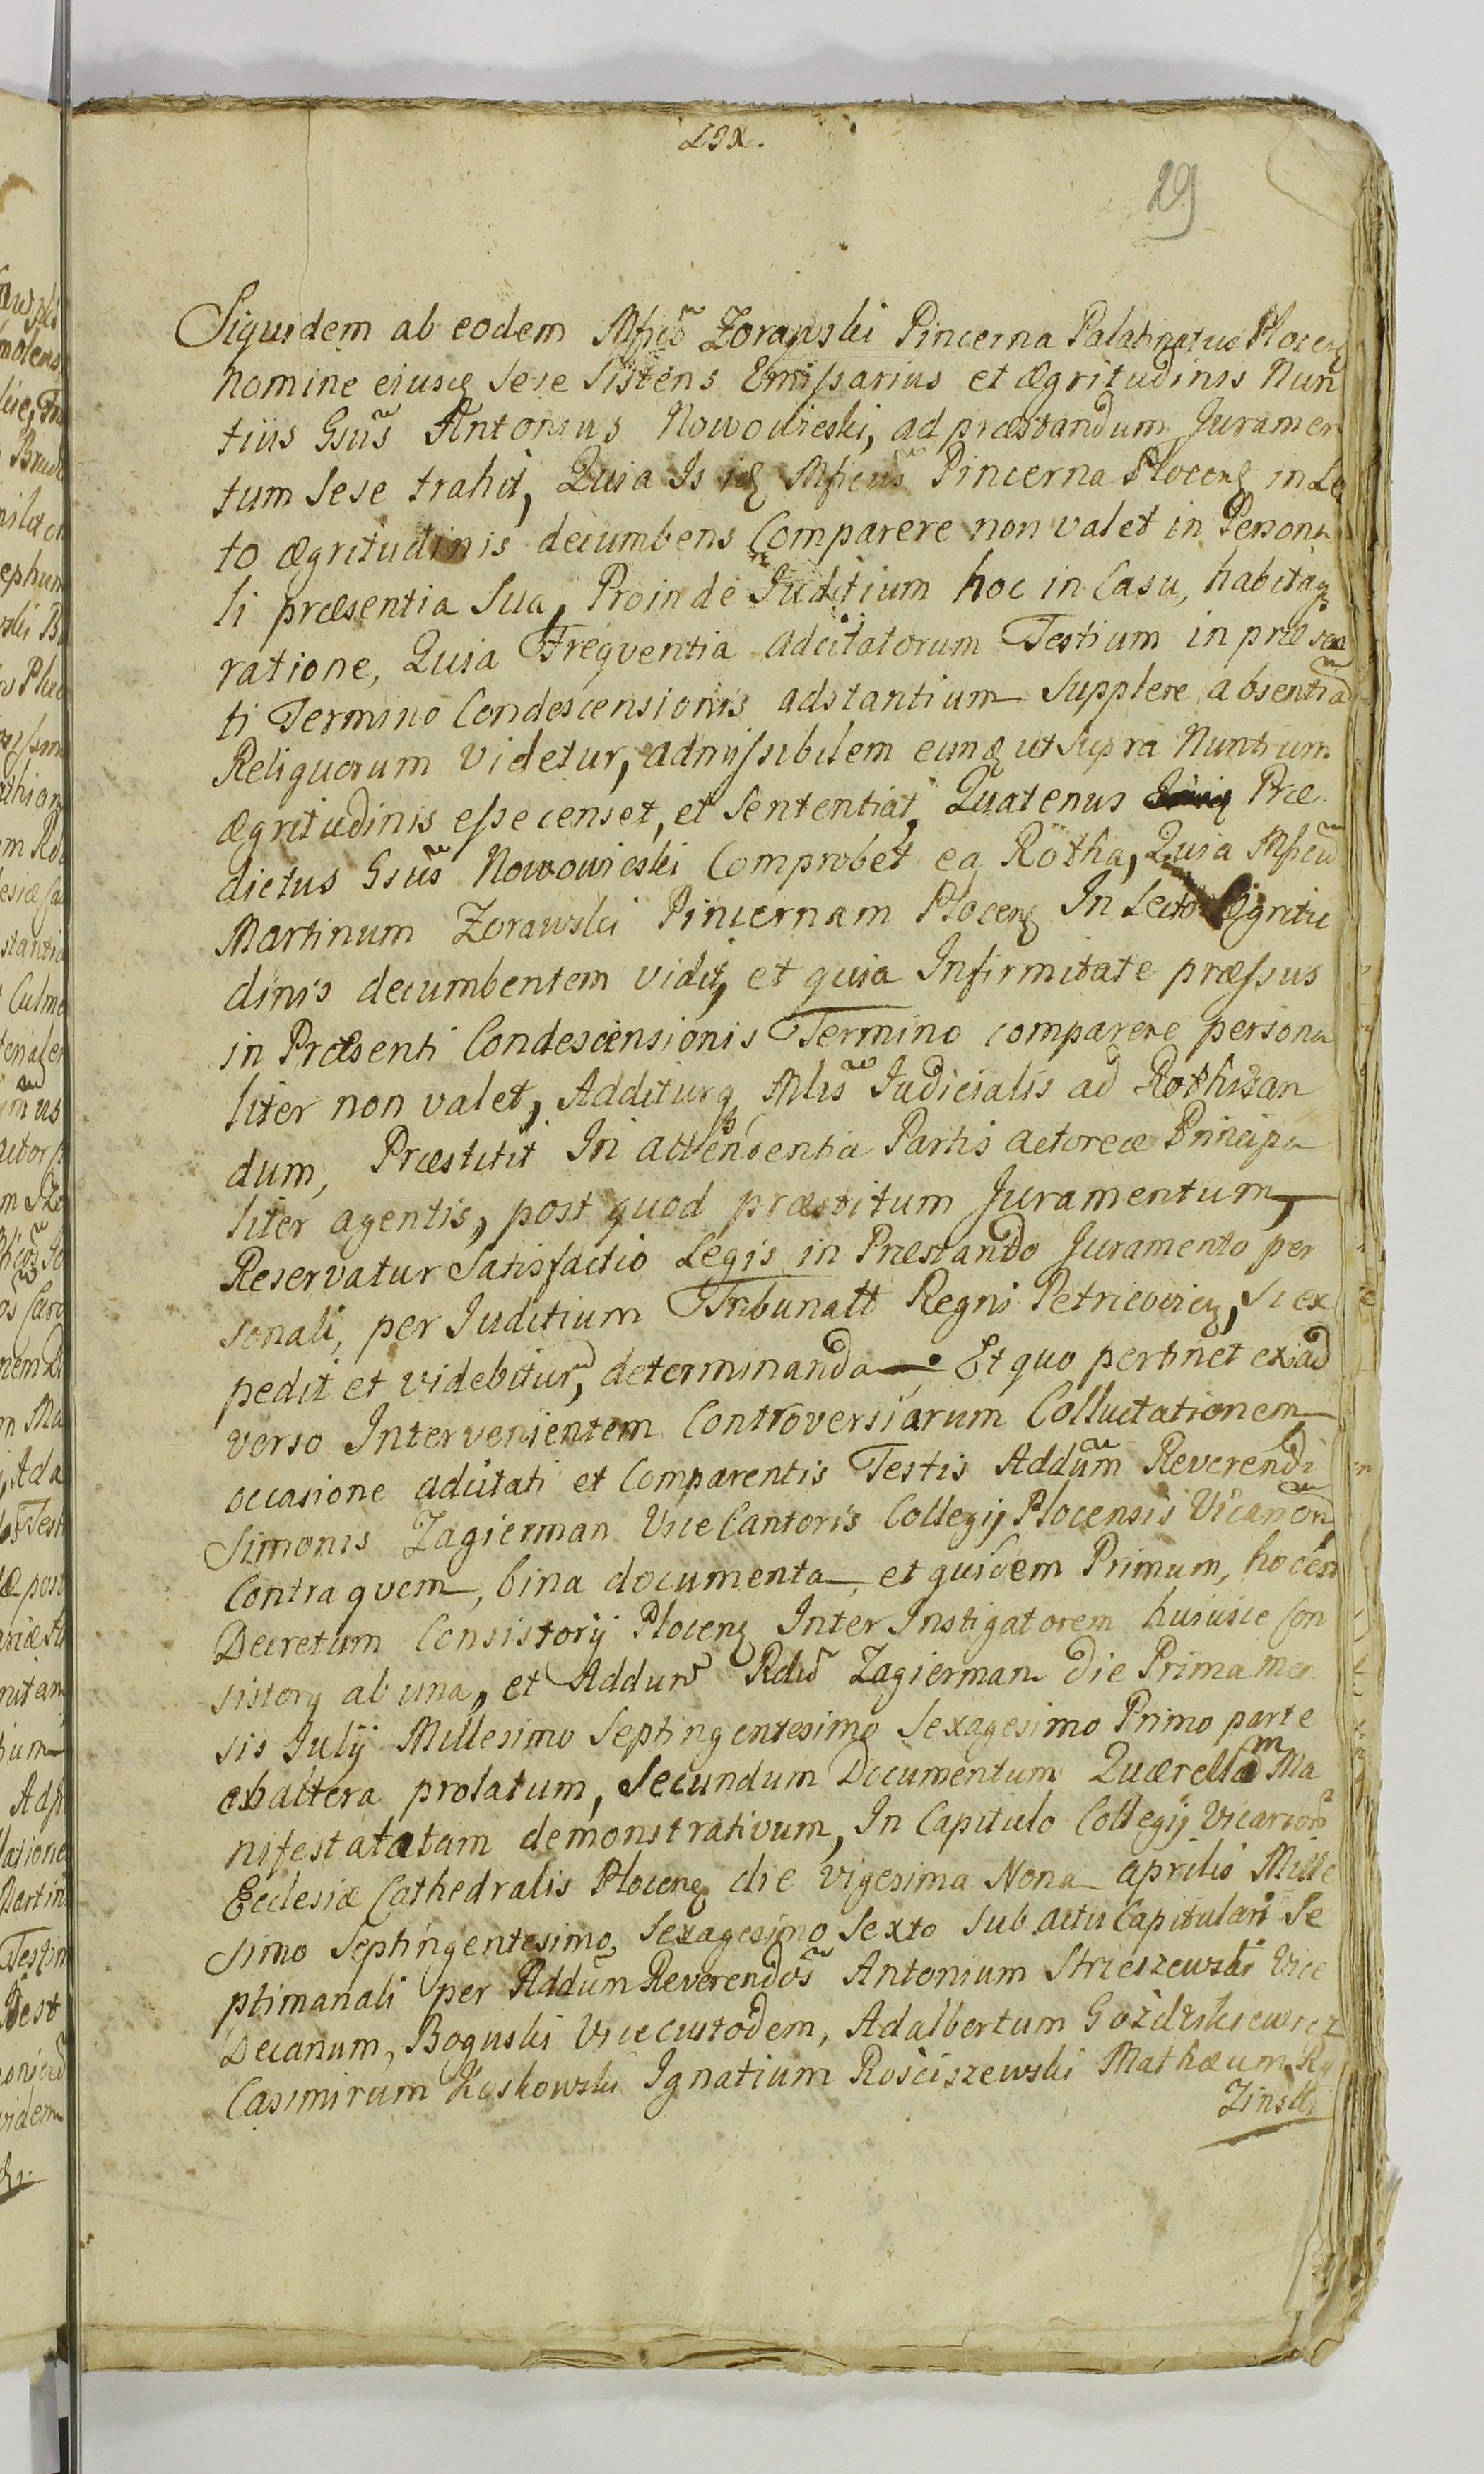 29
Siquidem ab eodem Mfico Zorawski Pincerna Palatinatus Plocen
nomine eiusq sese sistens Emissarius et ægritudinis Nun
tius Gsus Antonius Nowowieski, ad præstandum Juramen
tum sese trahit, Quia Is idq Mficus Pincerna Plocenq in Lec
to ægritudinis decumbens Comparere non valet in Persona
li præsentia Sua, Proinde Juditium hoc in Casu, habitaq
ratione, Quia Freqventia adcitatorum Testium in præsen
ti Termino Condescensionis adstantium Supplere absentiam
Reliquorum videtur, admissibilem eunq ut supra Nuntium
ægritudinis esse censet, et sententiat, Quatenus Præ
dictus Gsus Nowowieski Comprobet ea Rotha, Quia Mficum
Martinum Zorawski Pincernam Plocenq In Lecto Ægritu
dinis decumbentem vidit, et quia Infirmitate præssus
in Præsenti Condescensionis Termino comparere persona
liter non valet, Additurq Mlis Judicialis ad Rothizan
dum, Præstitit In attendentia Partis actoreæ Principa
liter agentis, post quod præstitum Juramentum,
Reservatur Satisfactio Legis in Præstando Juramento per
sonali, per Juditium Tribunalt Regni Petricovien, si ex
pedit et videbitur, determinanda. Et quo pertinet ex ad
verso Intervenientem Controversiarum Colluctationem
occasione adcitati et Comparentis Testis Addum Reverendi
Simonis Zagierman Vice Cantoris Collegij Plocensis Vicariorum
Contra quem, bina documenta, et quidem Primum, hocen
Decretum Consistorij Plocenq Inter Instigatorem huiusce Con
sistory ab una, et Addum Rdum Zagierman die Prima men
sis Julij Millesimo Septingentesimo Sexagesimo Primo parte
ab altera prolatum, Secundum Documentum Quærellam Ma
nifestatatam demonstrativum, In Capitulo Collegij Vicariorum
Ecclesiæ Cathedralis Plocenq die vigesima Nona aprilis Mille
simo Septingentesimo Sexagesimo Sexto sub actu Capitulari Se
ptimanali per Addum Reverendos Antonium Strzeszewski Vice
Decanum, Boguski Vice custodem, Adalbertum Gożdzikiewicz
Casimirum Koskowski Ignatium Rosciszewski Mathæum Ry
Zinski